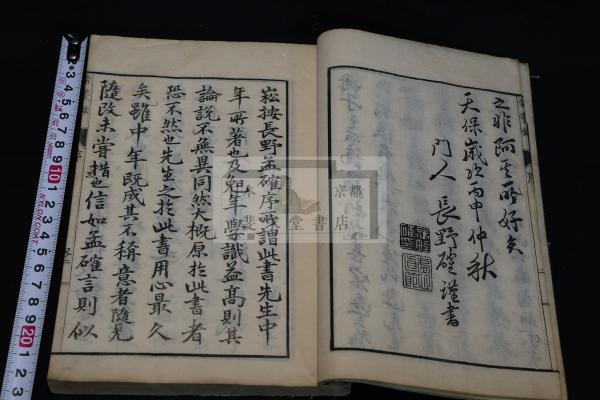 之非阿其所好矣
天保歲次丙申仲秋
門人 長野確謹書
崧按長野孟確序所謂此書先生中
年所著也及知年學識益高則其
論説不無異同然大概原於此書者
恐不然也先生之於此書用心最久
矣雖中年既成其不稱意者隨見
隨改未嘗措也信如孟確言則似
京都
堂書店